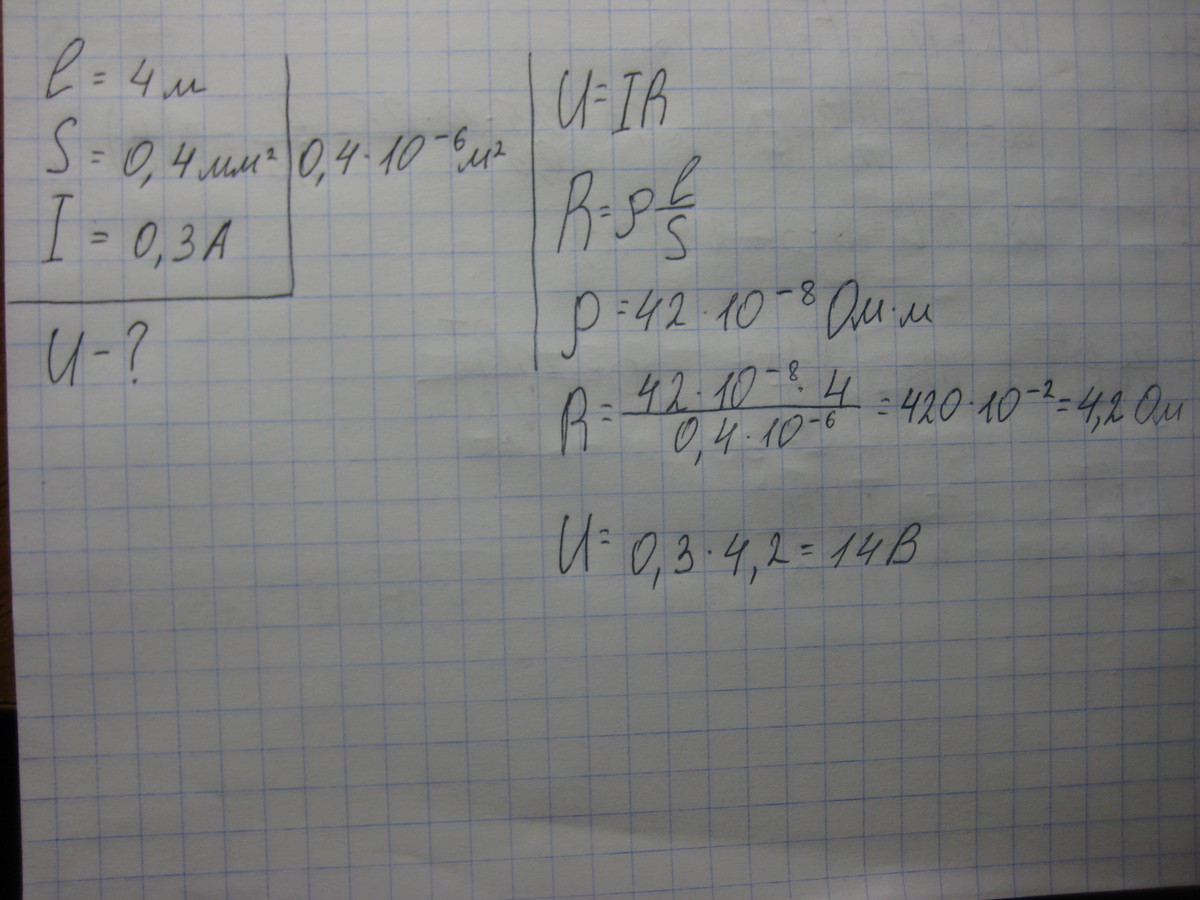 l = 4 м
S = 0,4 мм² 0,4·10⁻⁶ м²
I = 0,3 А
U – ?
U = IR
R = ρ l/S
ρ = 42·10⁻⁸ Ом·м
R = 42·10⁻⁸·4 / 0,4·10⁻⁶ = 420·10⁻² = 4,2 Ом
U = 0,3·4,2 = 14 В